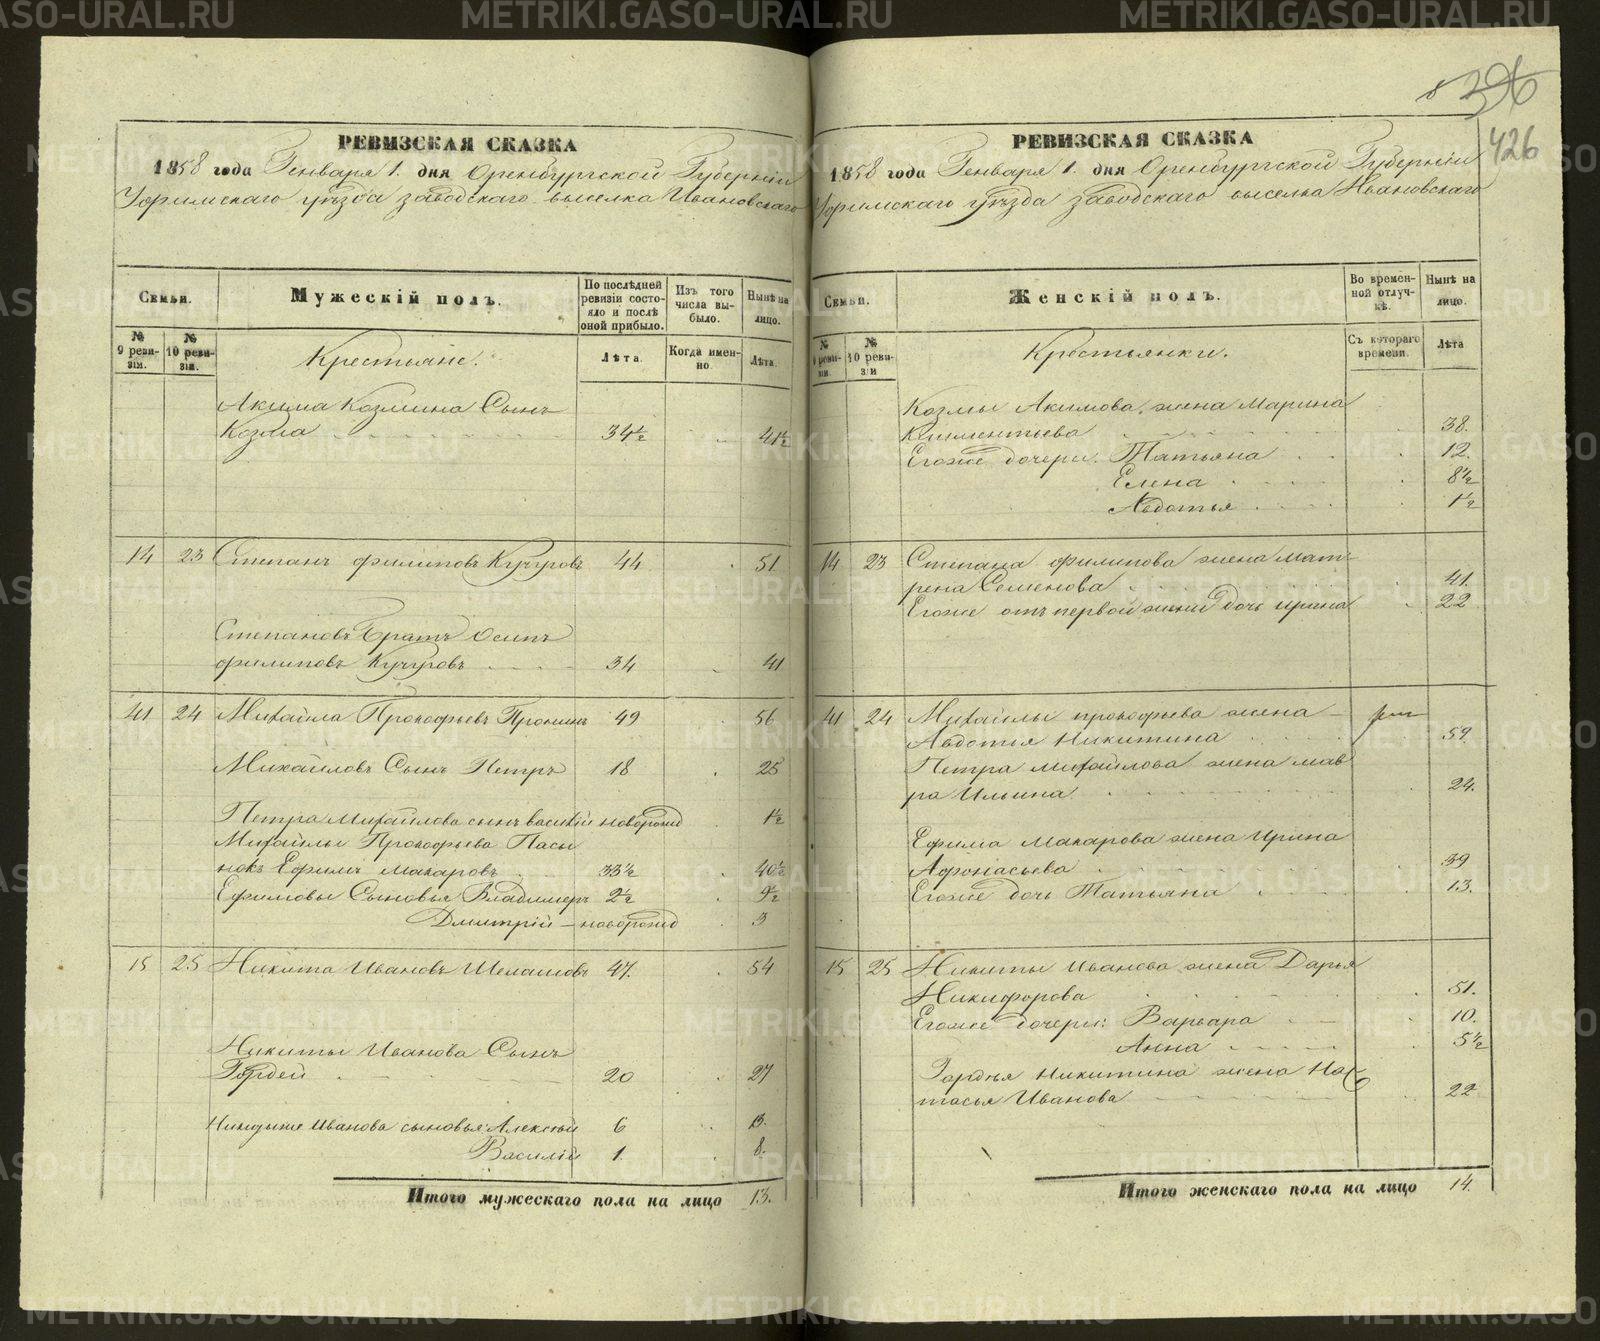 396
426
РЕВИЗСКАЯ СКАЗКА
1858 года Генваря 1. дня Оренбургской Губернiи
Уфимскаго уѣзда заводскаго выселка Ивановскаго
Семьи.
Мужескiй полъ.
По послѣдней ревизiи состояло и послѣ оной прибыло.
Изъ того числа выбыло.
Нынѣ на лицо.
№ 9 ревизiи.
№ 10 ревизiи.
Крестьяне.
Лѣта.
Когда именно.
Лѣта.
Акима Козмина Сынъ
Козма 34½ 41½
14 23 Степанъ Филиповъ Кучуровъ 44 51
Степановъ Братъ Осипъ
Филиповъ Кучуровъ 34 41
41 24 Михайла Прокофьевъ Пронинъ 49 56
Михайловъ Сынъ Петръ 18 25
Петра Михайлова сынъ Василiй новорожд 1½
Михайлы Прокофьева Пасы
нокъ Ефимъ Макаровъ 33½ 40½
Ефимовы Сыновья Владимеръ 2½ 9½
Дмитрiй – новорожд 3
15 25 Никита Ивановъ Шелашовъ 47. 54
Никиты Иванова Сынъ
Гордей 20 27
Иванова сыновья: Алексѣй 6 13.
Василiй 1. 8.
Итого мужескаго пола на лицо 13.
РЕВИЗСКАЯ СКАЗКА
1858 года Генваря 1. дня Оренбургской Губернiи
Уфимскаго уѣзда заводскаго выселка Ивановскаго
Семьи.
Женскiй полъ.
Во временной отлучкѣ.
Нынѣ на лицо.
№ 9 ревизiи.
№ 10 ревизiи
Крестьянки.
Съ котораго времени.
Лѣта
Козмы Акимова жена Марина
Климентьева 38.
Егоже дочери. Татьяна 12.
Елена 8½
Авдотья 1½
14 23 Степана Филипова жена Мат-
рена Семенова 41.
Егоже отъ первой жены дочь Ирина 22
41 24 Михайлы Прокофьева жена –
Авдотья Никитина 59.
Петра Михайлова жена Мав
ра Ильина 24.
Ефима Макарова жена Ирина
Афонасьева 39
Егоже дочь Татьяна 13.
15 25 Никиты Иванова жена Дарья
Никифорова 51.
Егоже дочери: Варвара 10.
Анна 5½
Гордѣя Никитина жена На
тасья Иванова 22
Итого женскаго пола на лицо 14.
METRIKI.GASO-URAL.RU